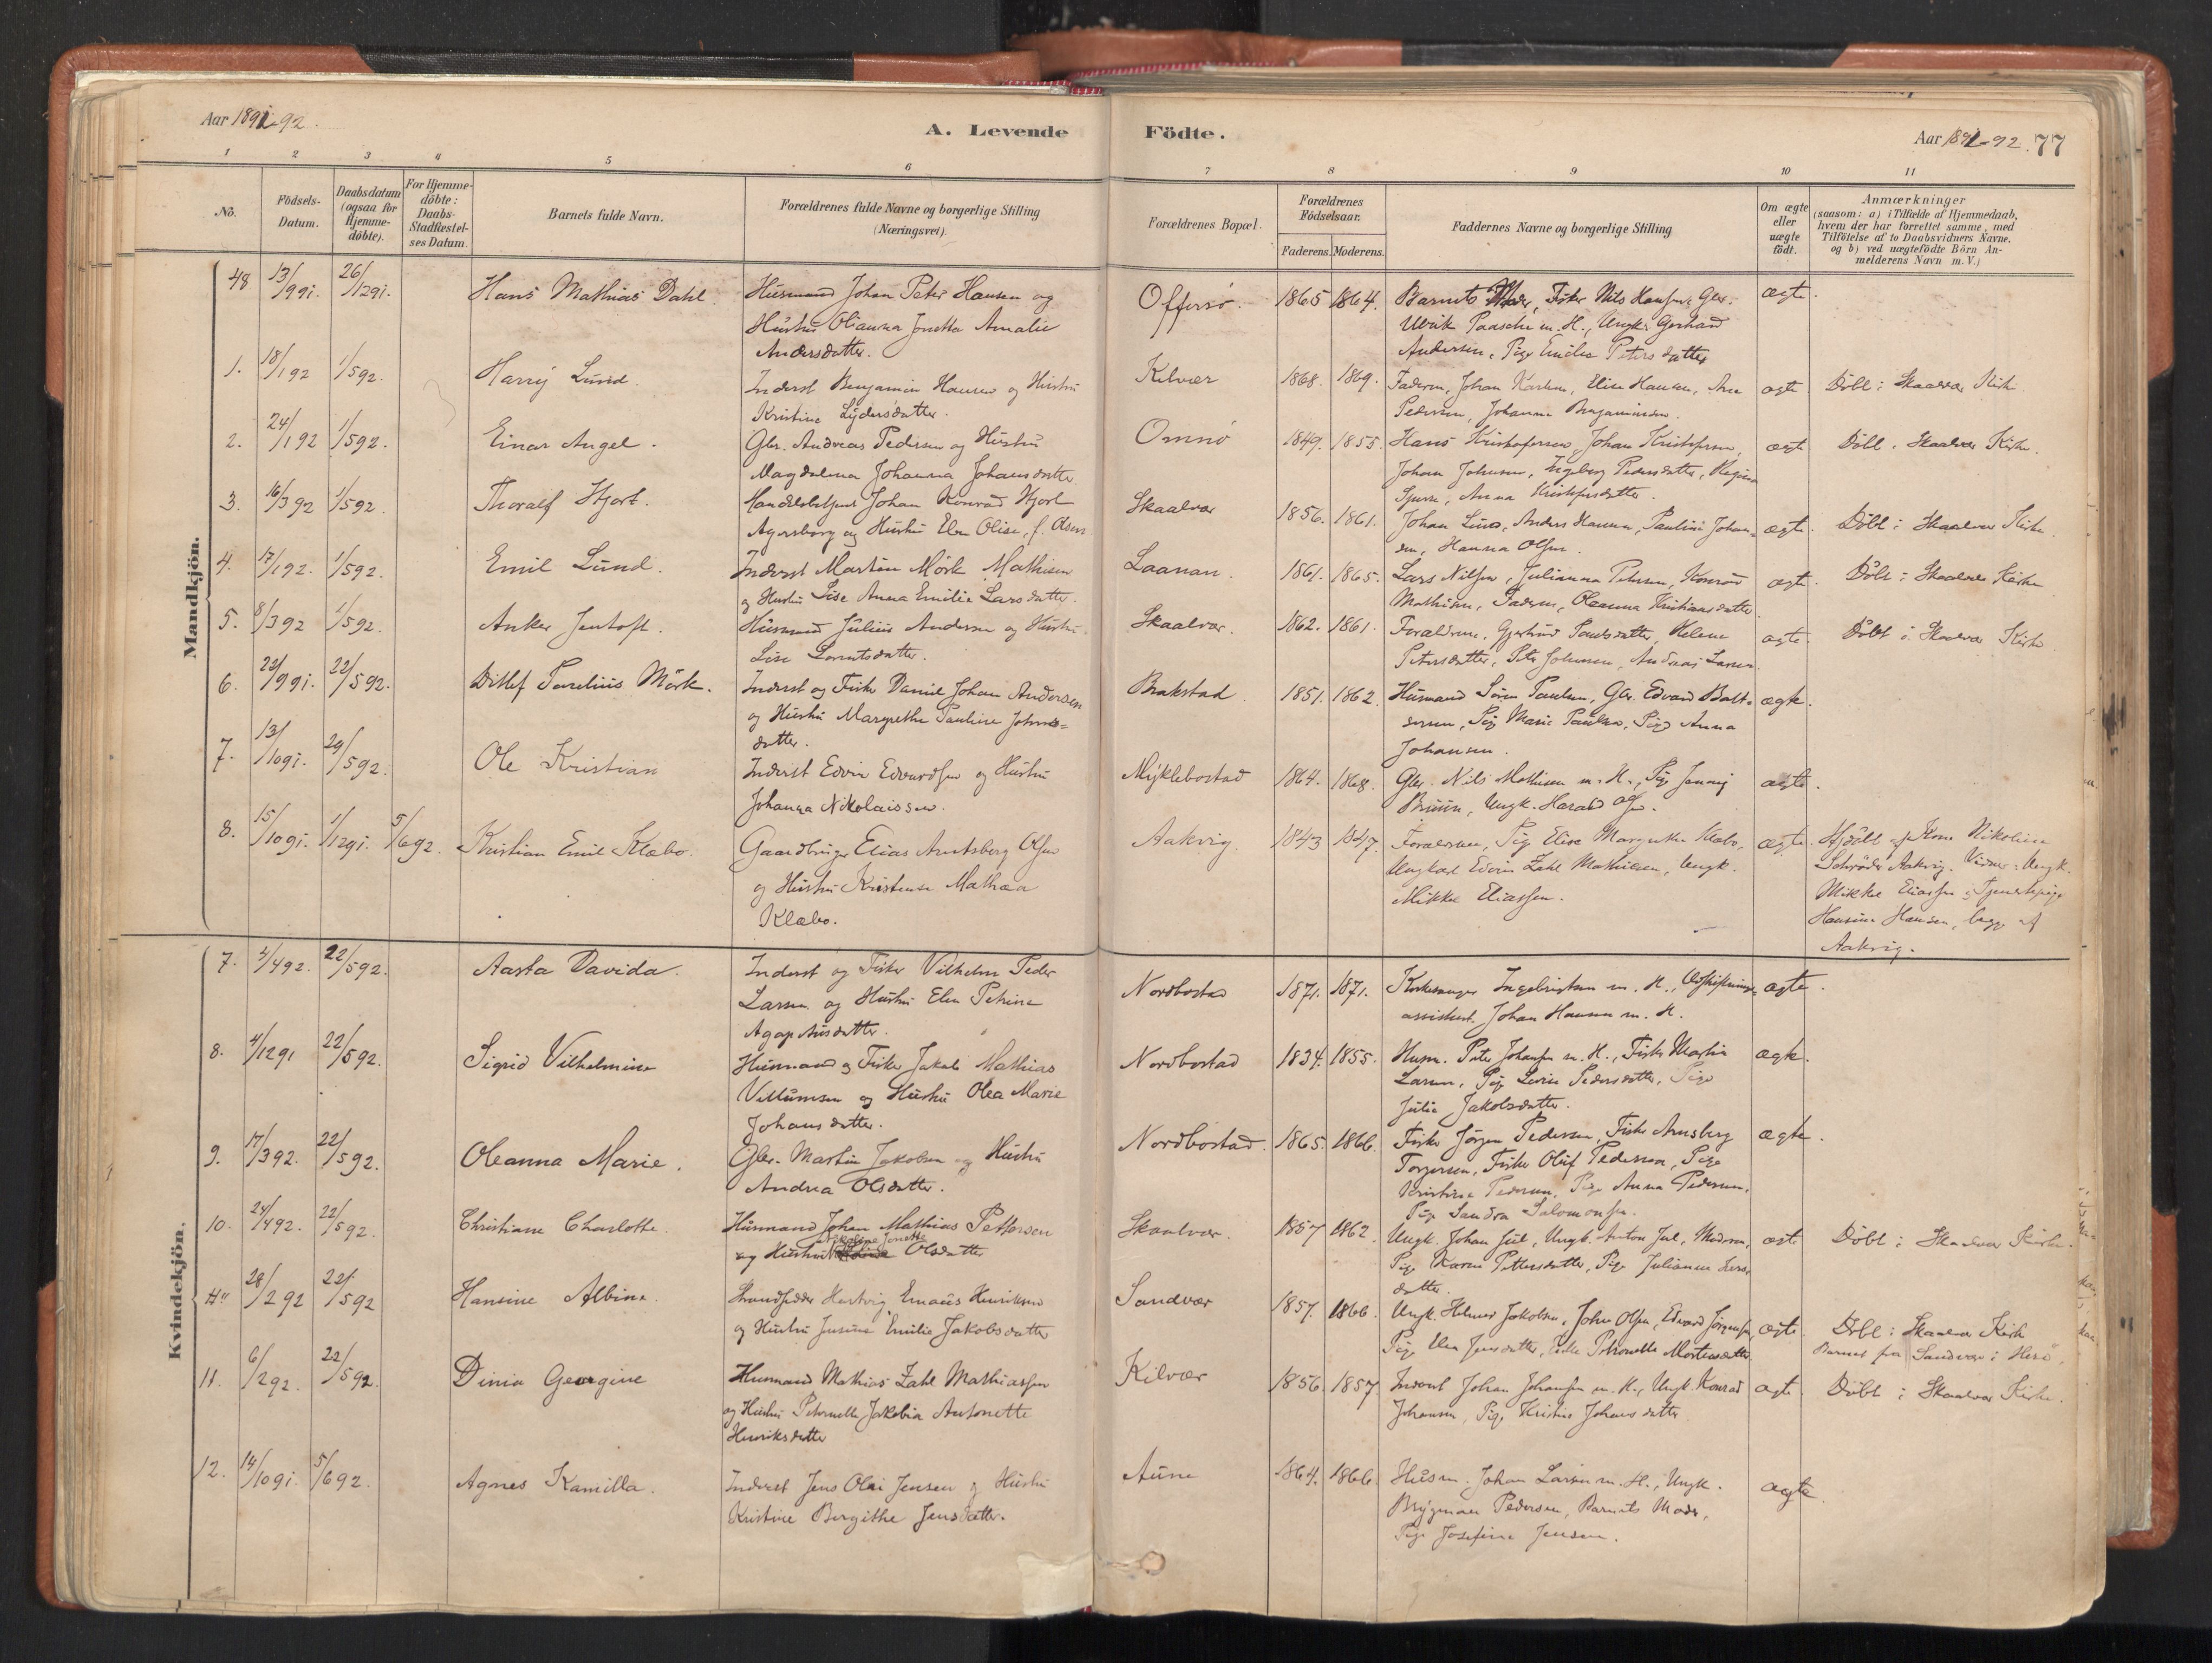 Aar 1891-92.
A. Levende Födte.
Aar 1891-92. 77
1 2 3 4 5 6 7 8 9 10 11
No.
Födsels-Datum.
Daabsdatum (ogsaa for Hjemme-döbte).
For Hjemme-döbte: Daabs-Stadfæstel-ses Datum.
Barnets fulde Navn.
Forældrenes fulde Navne og borgerlige Stilling
(Næringsvei).
Forældrenes Bopæl.
Forældrenes Födselsaar.
Faderens. Moderens.
Faddernes Navne og borgerlige Stilling
Om ægte eller uægte födt.
Anmærkninger
(saasom: a) i Tilfælde af Hjemmedaab,
hvem der har forrettet samme, med
Tilföielse af to Daabsvidners Navne.
og b) ved uægtefödte Börn An-
melderens Navn m. V.)
Mandkjön.
48 13/991. 26/1291. Hans Mathias Dahl. Husmand Johan Peter Hansen og Offersø. 1865 1864. Barnets Moder, Fisker Nils Hansen, Gbr. ægte.
Hustru Olianna Jonetta Amalie
Andersdatter.
Ulrik Paasche m. H., Ungk. Gerhard
Andersen, Pige Emilie Petersdatter
1. 18/192 1/592. Harry Lund. Inderst Benjamin Hansen og Hustru Kilvær 1868. 1869. Faderen, Johan Karlsen, Elise Hansen, ægte. Döbt i Skaalvær Kirke
Kristine Lydersdatter.
Pedersen, Johanna Benjaminsen.
2. 24/192 1/592. Einar Angel. Gbr. Andreas Pedersen og Hustru Omnø 1849. 1855. Hans Kristofersen, Johan Kristofersen, ægte Döbt i Skaalvær Kirke.
Magdalena Johanna Johansdatter
Johan Johnsen, Ingeborg Pedersdatter, Regina
Anna Kristofersdatter.
3. 16/392 1/592. Thoralf Hjort. Handelsbetjent Johan Konrad Hjort Skaalvær 1856. 1861. Johan Lund, Anders Hansen, Pauline Johan- ægte. Döbt i Skaalvær Kirke.
Agersborg og Hustru Elen Olise, f. Olsen
sen, Hanna Olsen.
4. 17/192. 1/592. Emil Lund. Inderst Martin Mörk Mathisen Laanan. 1861. 1865. Lars Nilsen, Julianna Petersen, Konrad ægte. Döbt i Skaalvær Kirke
og Hustru Lise Anna Emilie Larsdatter.
Mathisen, Faderen, Oleanna Kristiansdatter
5. 8/392 1/592. Anker Jentoft. Husmand Julius Andersen og Hustru Skaalvær. 1862. 1861. Forældrene, Gjertrud Paulsdatter, Helene ægte. Döbt i Skaalvær Kirke
Lise Lorntsdatter.
Petersdatter, Peter Johnsen, Andreas Larsen.
6. 22/591. Ditlef Parelius Mörk. Inderst og Fisker Daniel Johan Andersen Brakstad 1851. 1862. Husmand Sören Paulsen, Gbr. Edvard Balt- ægte.
og Hustru Margrethe Pauline Johns-
datter.
sersen, Pige Marie Paulsen, Pige Anna
Johansen.
7. 13/1091. 29/592. Ole Kristian Inderst Edvin Edvardsen og Hustru Myklebostad 1864. 1868. Gbr. Nils Mathisen m. H., Pige Jenny ægte.
Johanna Nikolaissen.
Bruun, Ungk. Harald
8. 15/1091. 1/1291. 5/692. Kristian Emil Klæbo. Gaardbruger Elias Arntsberg Olsen Aakvig. 1843 1847. Forældrene, Pige Elise Margrethe Klæbo, ægte. Hjdöbt af Kone Nikoline
og Hustru Kristense Mathea
Klæbo.
Ungkarl Edvin Zahl Mathisen, Ungk.
Mikkel Eliassen.
Schröder Aakvig. Vidner: Ungk.
Mikkel Eliassen & Tjenestepige
Hansine Hansen, begge af
Aakvig.
Kvindekjön.
7. 2/492. 22/592. Aasta Davida. Inderst og Fisker Vilhelm Peder Nordbostad 1871. 1871. Kirkesanger Ingebrigtsen m. H., Udskiftnings- ægte.
Larsen og Hustru Elen Petrine
Agapetusdatter.
assistent Johan Hansen m. H.
8. 4/1291 22/592. Sigrid Vilhelmine Husmand og Fisker Jakob Mathias Nordbostad 1834. 1855. Husm. Peter Johansen m. H., Fisker Martin ægte.
Villumsen og Hustru Olea Marie
Johansdatter.
Larsen, Pige Lovise Pedersdatter, Pige
Julie Jakobsdatter.
9. 17/392. 22/592. Oleanna Marie. Gbr. Martin Jakobsen og Hustru Nordbostad. 1865. 1866. Fisker Jörgen Pedersen, Fisker Arnsberg ægte.
Andrea Olsdatter.
Torgersen, Fisker Oluf Pedersen, Pige
Kristine Pedersen, Pige Anna Pedersen,
Pige Sandra Salomonsen.
10. 24/492. 22/592. Christiane Charlotte. Husmand Johan Mathias Pettersen Skaalvær. 1857 1862. Ungk. Johan Juul, Ungk. Anton Juul, Moderen, ægte Döbt i Skaalvær Kirke.
og Hustru Nikoline Jonette Olsdatter
Pige Karen Pettersdatter, Pige Julianne Lars-
datter.
28/292 22/592 Hansine Albine. Strandsidder Hartvig Emaus Henriksen Sandvær 1857. 1866. Ungk. Helmer Jakobsen, John Olsen, Edvard Jörgensen, ægte. Döbt i Skaalvær Kirke
og Hustru Jensine Emilie Jakobsdatter
Pige Elen Jensdatter, Enke Petronelle Mortensdatter.
Barnet fra Sandvær i Herö.
11. 6/292. 22/592. Dinia Georgine Husmand Mathias Zahl Mathiassen Kilvær 1856. 1857 Inderst Johan Johansen m. H., Ungk. Konrad ægte. Döbt i Skaalvær Kirke.
og Hustru Petronelle Jakobia Antonette
Henriksdatter
Johansen, Pige Kristine Johansdatter
12. 14/1091. 5/692. Agnes Kamilla. Inderst Jens Olai Jensen og Hustru Aune 1864. 1866. Husm. Johan Larsen m. H., Ungk. ægte
Kristine Birgithe Jensdatter.
Brygman Pedersen, Barnets Moder,
Pige Josefine Jensen.